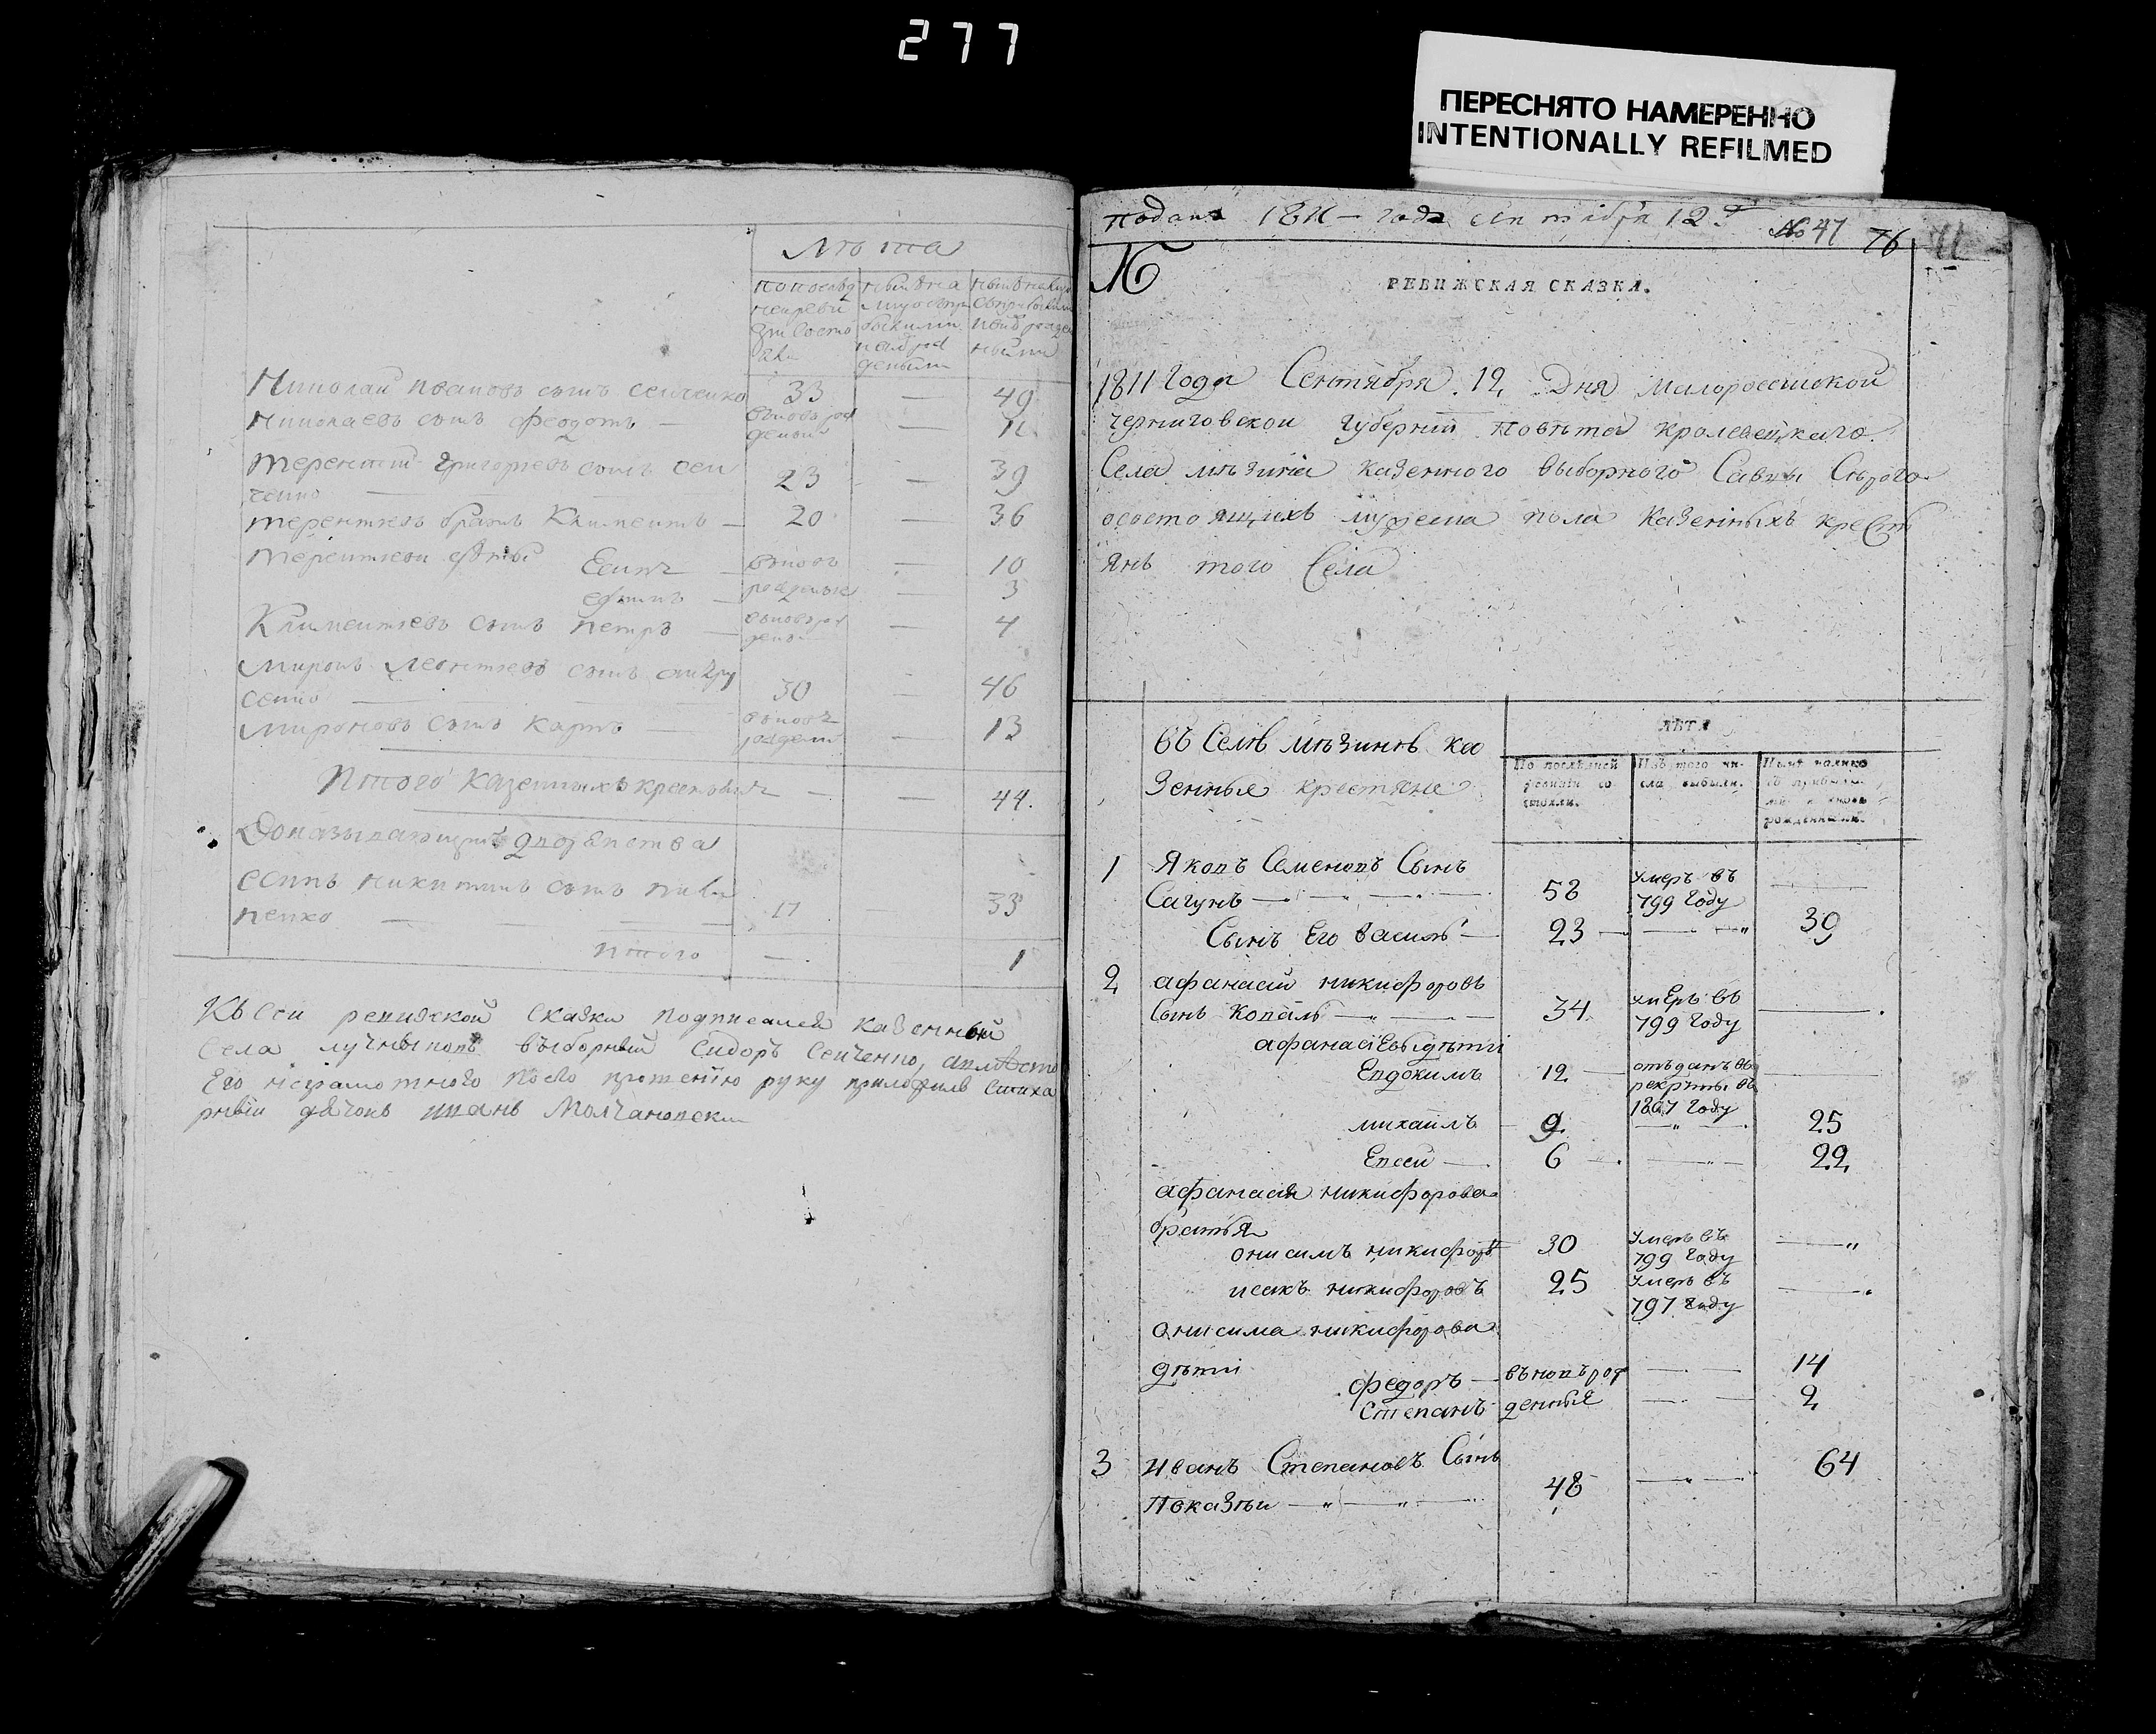 277
ПЕРЕСНЯТО НАМЕРЕННО
INTENTIONALLY REFILMED
Лѣта
Николай Ивановъ сынъ Сенченко 33 — 49
Николаевъ сынъ Феодотъ —
Терентий Григорьевъ сынъ Сен
ченко — 23 — 39
Терентиевъ братъ Климентъ — 20 — 36
Терентиеви дѣти Есипъ — вновь — 10
рожденые — 3
Климентиевъ сынъ Петръ — — 4
Миронъ Леонтиевъ сынъ
сенко — 30 — 46
Мироновъ сынъ Карпъ вновь рожденъ — 13
Итого казенныхъ крестьянъ — — 44.
Есипъ Никитинъ сынъ
пенко — 17 — 33
Итого — 1
Къ сей ревижской сказки подписался казенный
села выборный Сидоръ Сенченко, а вмѣсто
его неграмотного по его прошению руку приложилъ стиха
рный дячокъ Иванъ Молчановски
Подана 1811 — года сентября 12 № 47 76
РЕВИЖСКАЯ СКАЗКА.
1811 Года Сентября 12 Дня Малороссийской
Черниговской Губернии повѣта Кролевецкаго
Села Мѣзина казенного выборного Савы Сѣрого
осостоящихъ мужеска пола казенныхъ кресть
янъ того Села
Въ Селѣ Мѣзинѣ ка
зенные крестяне
ЛѢТА
По послѣдней ревизіи состояли.
Изъ того числа выбыли.
Нынѣ налицо съ прибылыми и вновь рожденными.
1 Яковъ Семеновъ Сынъ
Сагунъ — 58 умеръ въ 799 году —
Сынъ Его Василь — 23 — — 39
2 афанасий никифоровъ
Сынъ Коваль — 34 умеръ въ 799 году —
афанасіевы дѣти
Евдокимъ 12 — отъданъ въ рекруты въ 1807 году —
михайлъ — 9 — 25
Евсей — 6 — — 22
афанасия никифорова
братья
онисимъ никифоровъ 30 умеръ въ 799 году —
исакъ никифоровъ 25 умеръ въ 797 году —
онисима никифорова
дѣти
Федоръ — вновъ рож — 14
Степанъ денные — 2
3 Иванъ Степановъ Сынъ
48 — 64